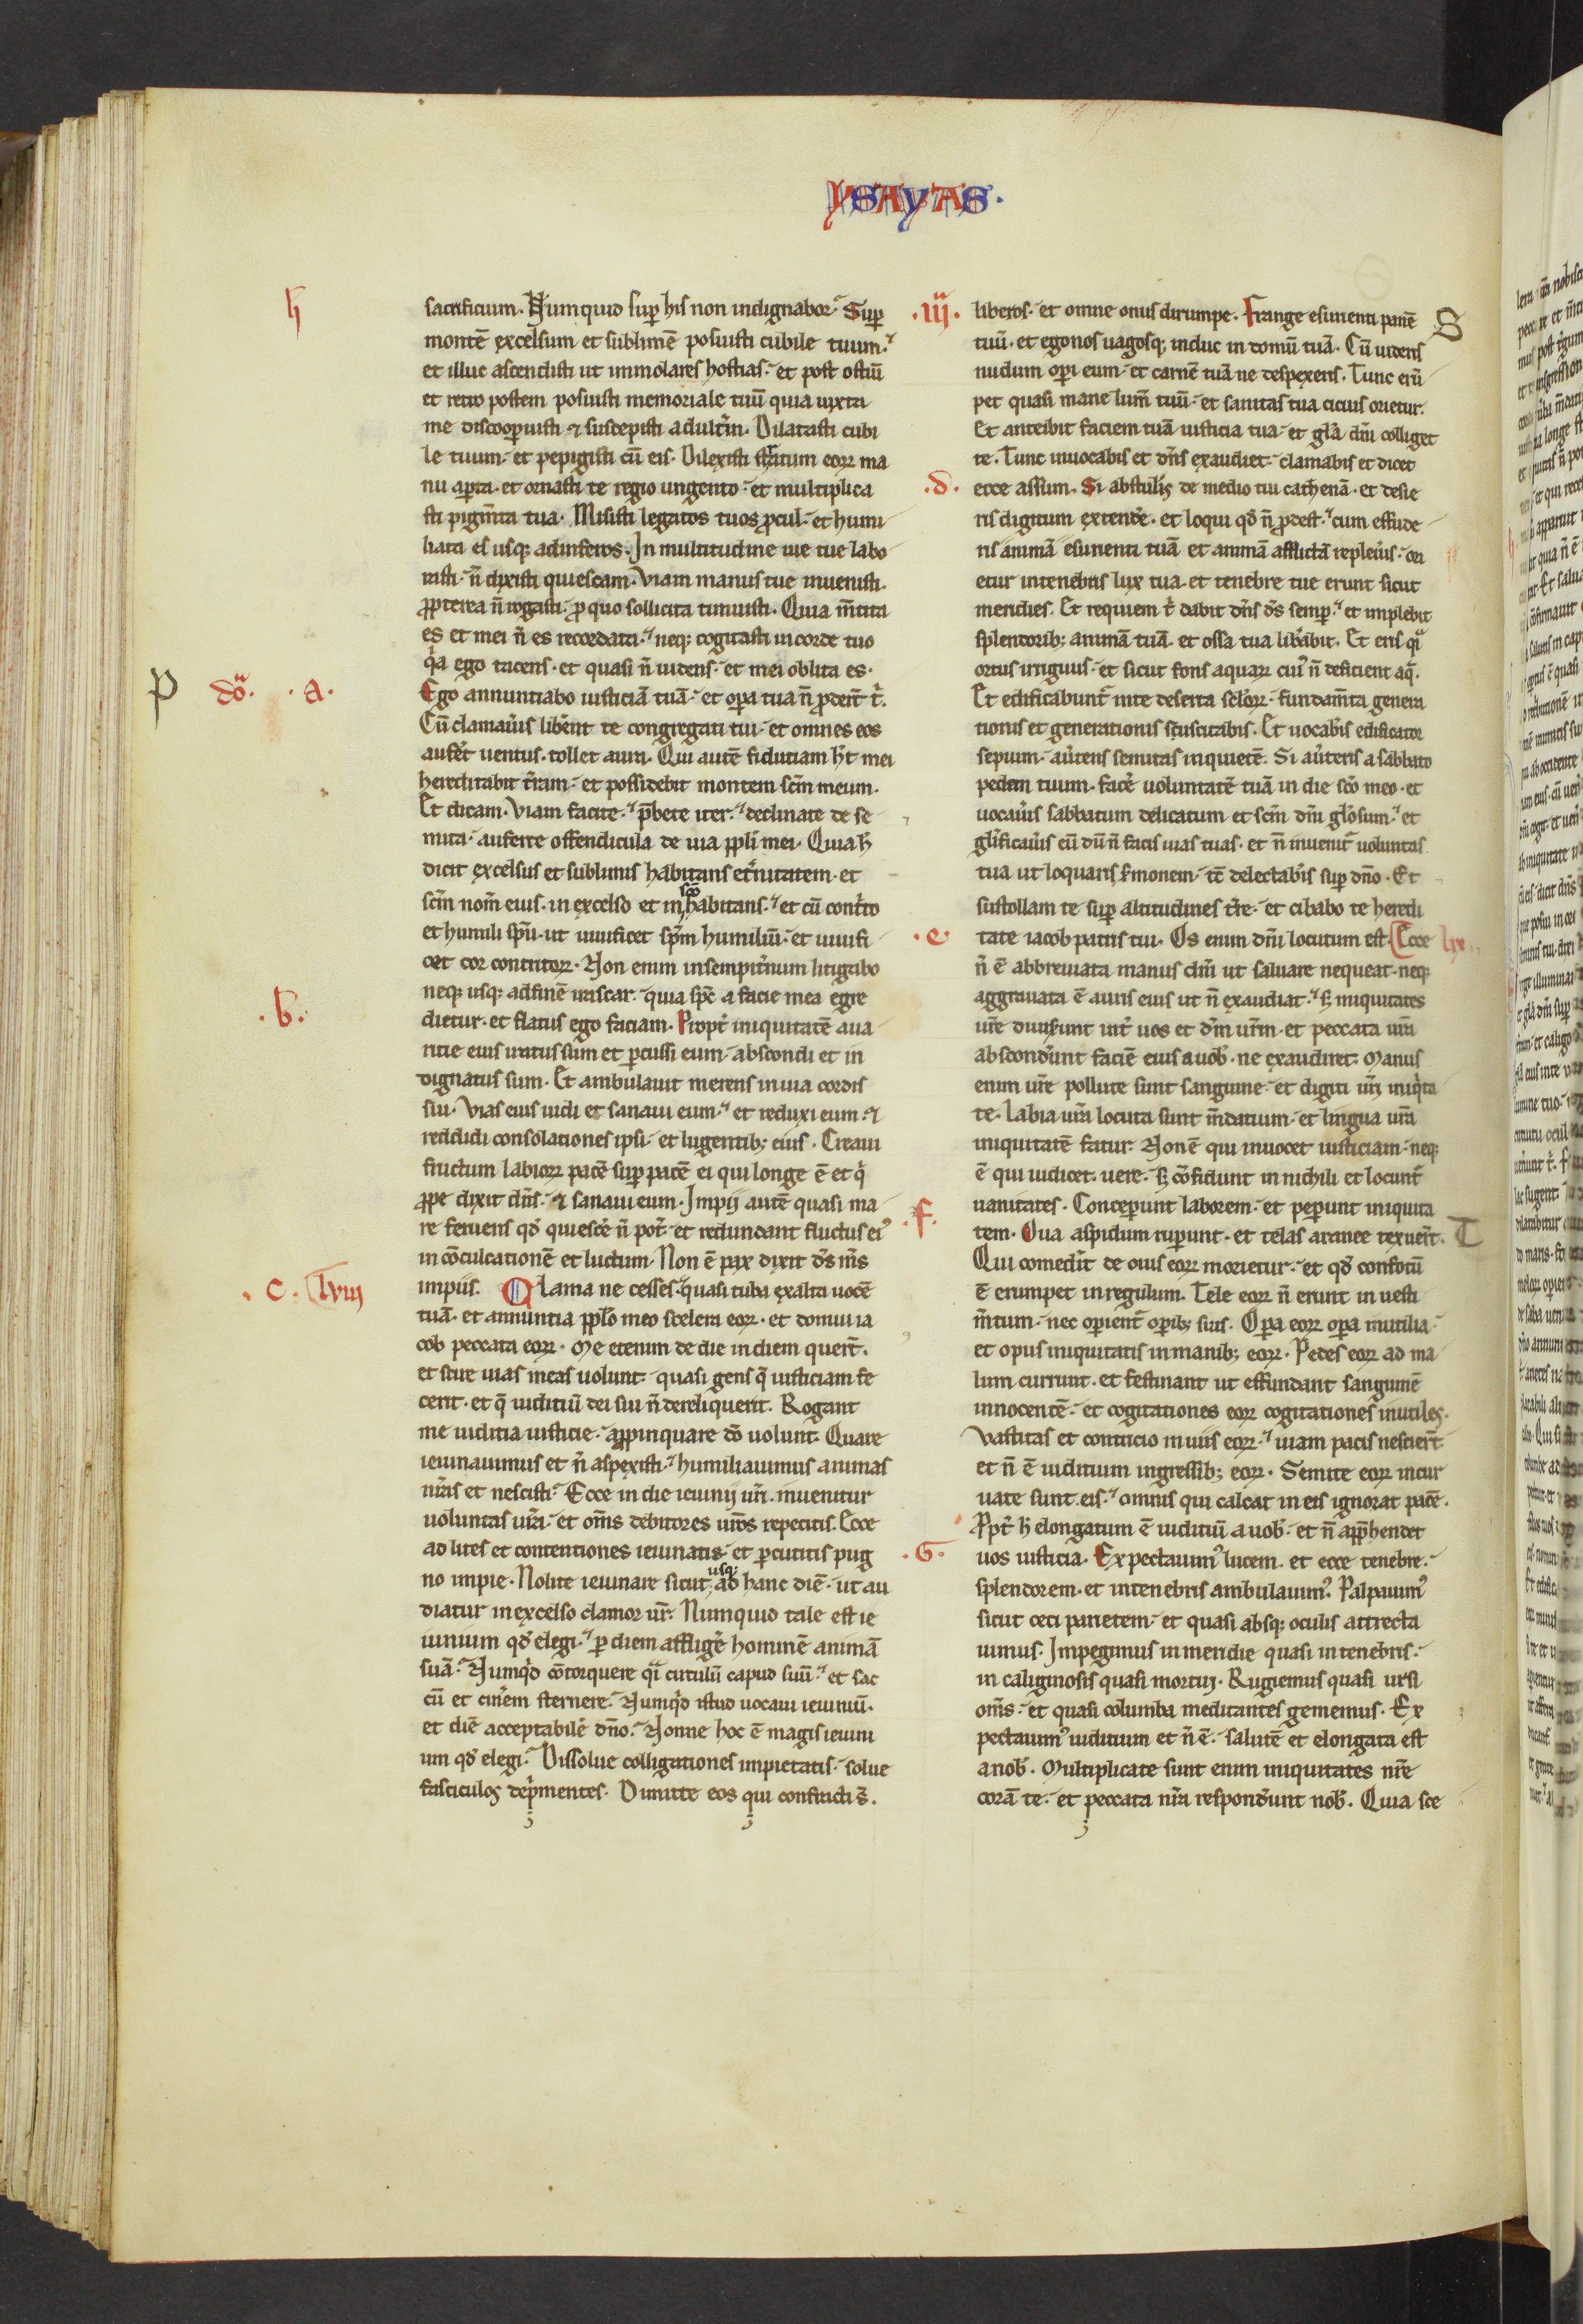 YSAYAS.
h
sacrificium. Numquid sup his non indignabor. Sup
montē excelsum et sublimē posuisti cubile tuum.
et illuc ascendisti ut immolares hostias. et post ostiū
et retro postem posuisti memoriale tuū quia iuxta
me discoopuisti et suscepisti adult̃m. Dilatasti cubi
le tuum. et pepigisti cū eis. Dilexisti stratum eoꝝ ma
nu apta. et ornasti te regio ungento. et multiplica
sti pigm̃ta tua. Misisti legatos tuos pcul. et humi
liata es usq; ad inferos. In multitudine uie tue labo
rasti. ñ dixisti quiescam. Viam manus tue inuenisti.
ppterea ñ rogasti. p quo sollicita timuisti. Quia m̃tita
es et mei ñ es recordata. neq; cogitasti in corde tuo
qia ego tacens. et quasi ñ uidens. et mei oblita es.
P dō. .a.
Ego annuntiabo iusticiā tuā. et opa tua ñ pdert̃ t̃.
Cū clamau̾is liberent te congregati tui. et omnes eos
aufet̃ uentus. tollet aura. Qui autē fiduciam ht̃ mei
hereditabit t̃ram. et possidebit montem scm̃ meum.
Et dicam. Viam facite. p̄bete iter. declinate de se
mita. auferte offendicula de uia ppli mei. Quia h̄
dicit excelsus et sublimis habitans et̃nitatem. et
scm̃ nom̃ eius. in excelso et in scō habitans. et cū cont̃to
et humili spū. ut uiuificet spm̃ humiliū. et uiuifi
cet cor contritoꝝ. Non enim in sempit̃num litigabo
.b.
neq; usq; ad finē irascar. quia spc̄ a facie mea egre
dietur. et flatus ego faciam. Propt̃ iniquitatē aua
ritie eius iratus sum et pcussi eum. abscondi et in
dignatus sum. Et ambulauit merens in uia cordis
sui. Vias eius uidi et sanaui eum. et reduxi eum. et
reddidi consolationes ipsi. et lugentib; eius. Creaui
fructum labioꝝ pacē sup pacē ei qui longe ē et q̃
ppe dixit dñs. et sanaui eum. Impij autē quasi ma
re feruens qd̾ quiesce̾ ñ pot̃. et redundant fluctus ei̾
in cōculcationē et lutum. Non ē pax dixit ds̃ m̃s
.c. lviij
impiis. Clama ne cesses. quasi tuba exalta uocē
tuā. et annuntia pplo meo scelera eoꝝ. et domui ia
cob peccata eoꝝ. Me etenim de die in diem querūt.
et scire uias meas uolunt. quasi gens q̃ iusticiam fe
cerit. et q̃ iuditiū dei sui ñ dereliquerit. Rogant
me iuditia iusticie. appinquare dō uolunt. Quare
ieiunauimus et ñ aspexisti. humiliauimus animas
nr̃as et nescisti. Ecce in die ieiunij ur̃i. inuenitur
uoluntas ur̃a. et om̃s debitores ur̃os repetitis. Ecce
ad lites et contentiones ieiunatis. et pcutitis pug
no impie. Nolite ieiunare sicut usq; ad hanc diē. ut au
diatur in excelso clamor ur̃. Numquid tale est ie
iunium qd̾ elegi. p diem afflige̾ hominē animā
suā. Numqd̾ cōtorquere qi circulū capud suū. et sac
cū et cin̾em sternere. Numqd̾ istud uocaui ieiuniū.
et diē acceptabilē dño. Nonne hoc ē magis ieiuni
um qd̾ elegi. Dissolue colligationes impietatis. solue
fasciculos dep̾mentes. Dimitte eos qui confracti s̃.
.iij.
liberos. et omne onus dirumpe. Frange esurienti panē S
tuū. et egenos uagosq; induc in domū tuā. Cū uideris
nudum opi eum. et carnē tuā ne despexeris. Tunc erū
pet quasi mane lum̃ tuū. et sanitas tua citius orietur.
Et anteibit faciem tuā iusticia tua. et gla dm̃ colliget
te. Tunc inuocabis et dñs exaudiet. clamabis et dicet
.d.
ecce assum. Si abstulis̾ de medio tui cathenā. et desie
ris digitum extende̾. et loqui qd̾ ñ pdest. cum effude
ris animā esurienti tuā et animā afflictā repleu̾is. ori
etur in tenebris lux tua. et tenebre tue erunt sicut
meridies. Et requiem t̃ dabit dñs ds̃ semp. et implebit
splendorib; animā tuā. et ossa tua libabit. Et eris qi
ortus irriguus. et sicut fons aquaꝝ cui̾ ñ deficient aq̃.
Et edificabunt̃ in te deserta sc̃loꝝ. fundam̃ta genera
tionis et generationis suscitabis. Et uocabis̾ edificator
sepium. au̾tens semitas in quietē. Si au̾teris a sabbato
pedem tuum. face̾ uoluntatē tuā in die scō meo. et
uocau̾is sabbatum delicatum et scm̃ dm̃ glosum. et
glificau̾is eū dū ñ facis uias tuas. et ñ inuenit̃ uoluntas
tua ut loquaris s̾monem. tc̄ delectabis̾ sup dño. Et
sustollam te sup altitudines tr̃e. et cibabo te heredi
.e.
tate iacob patris tui. Os enim dm̃ locutum est. Ecce lix
ñ ē abbreuiata manus dm̃ ut saluare nequeat. neq;
aggrauata ē auris eius ut ñ exaudiat. s; iniquitates
ur̃e diuiserunt int̃ uos et dm̃ ur̃m. et peccata ur̃a
abscond̾unt faciē eius a uob̾. ne exaudiret. Manus
enim ur̃e pollute sunt sanguine. et digiti ur̃i iniqta
te. labia ur̃a locuta sunt m̃datium. et lingua ur̃a
iniquitatē fatur. Non ē qui inuocet iusticiam. neq;
ē qui iudicet uere. s; cōfidunt in nichili et locunt̃
uanitates. Conceperunt laborem. et pepunt iniquita
.f.
tem. Oua aspidum rupunt. et telas aranee texuert̃. T
Qui comedit̃ de ouis eoꝝ morietur. et qd̾ confotū
ē erumpet in regulum. Tele eoꝝ ñ erunt in uesti
m̃tum. nec opient̃ opib; suis. Opa eoꝝ opa inutilia.
et opus iniquitatis in manib; eoꝝ. Pedes eoꝝ ad ma
lum currunt. et festinant ut effundant sanguinē
innocentē. et cogitationes eoꝝ cogitationes inutiles.
Vastitas et contricio in uiis eoꝝ. uiam pacis nesciert̃.
et ñ ē iuditium in gressib; eoꝝ. Semite eoꝝ incur
uate sunt eis. omnis qui calcat in eis ignorat pacē.
Ppt̃ h̄ elongatum ē iuditiū a uob̾. et ñ app̄hendet
.G.
uos iusticia. Expectauim̾ lucem. et ecce tenebre.
splendorem. et in tenebris ambulauim̾. Palpauim̾
sicut ceci parietem. et quasi absq; oculis attrecta
uimus. Impegimus in meridie quasi in tenebris.
in caliginosis quasi mortui. Rugiemus quasi ursi
om̃s. et quasi columba meditantes gememus. Ex
pectauim̾ iuditium et ñ ē. salutē et elongata est
a nob̾. Multiplicate sunt enim iniquitates nr̃e
corā te. et peccata nr̃a respond̾unt nob̾. Quia sce